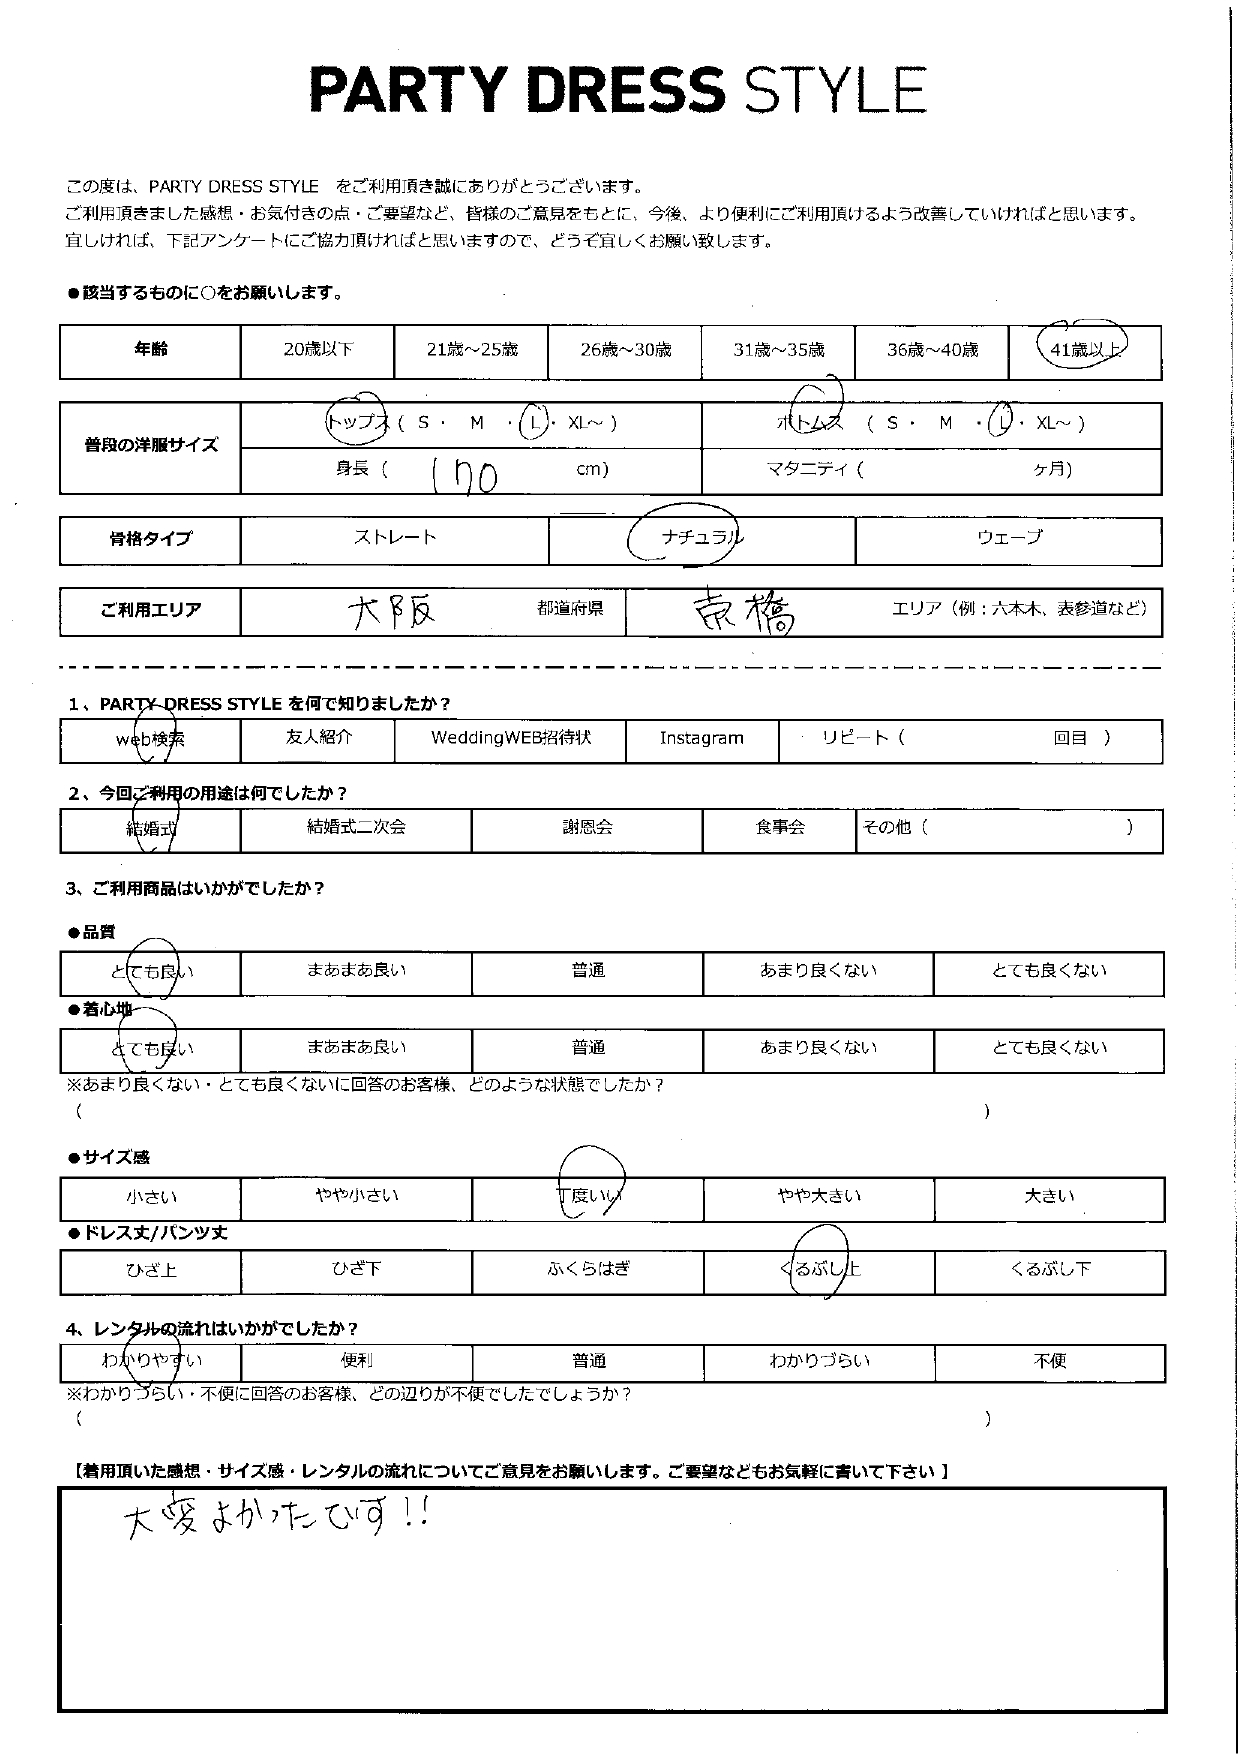 PARTY DRESS STYLE
この度は、PARTY DRESS STYLE をご利用頂き誠にありがとうございます。
ご利用頂きました感想・お気付きの点・ご要望など、皆様のご意見をもとに、今後、より便利にご利用頂けるよう改善していければと思います。
宜しければ、下記アンケートにご協力頂ければと思いますので、どうぞ宜しくお願い致します。
●該当するものに○をお願いします。
年齢 20歳以下 21歳～25歳 26歳～30歳 31歳～35歳 36歳～40歳 41歳以上
普段の洋服サイズ トップス ( S ・ M ・ L ・ XL～ ) ボトムス ( S ・ M ・ L ・ XL～ )
身長 ( 170 cm) マタニティ ( ヶ月)
骨格タイプ ストレート ナチュラル ウェーブ
ご利用エリア 大阪 都道府県 京橋 エリア（例：六本木、表参道など）
1、PARTY DRESS STYLE を何で知りましたか？
web検索 友人紹介 WeddingWEB招待状 Instagram リピート（ 回目 ）
2、今回ご利用の用途は何でしたか？
結婚式 結婚式二次会 謝恩会 食事会 その他（ ）
3、ご利用商品はいかがでしたか？
●品質
とても良い まあまあ良い 普通 あまり良くない とても良くない
●着心地
とても良い まあまあ良い 普通 あまり良くない とても良くない
※あまり良くない・とても良くないに回答のお客様、どのような状態でしたか？
（ ）
●サイズ感
小さい やや小さい 丁度いい やや大きい 大きい
●ドレス丈/パンツ丈
ひざ上 ひざ下 ふくらはぎ くるぶし上 くるぶし下
4、レンタルの流れはいかがでしたか？
わかりやすい 便利 普通 わかりづらい 不便
※わかりづらい・不便に回答のお客様、どの辺りが不便でしたでしょうか？
（ ）
【着用頂いた感想・サイズ感・レンタルの流れについてご意見をお願いします。ご要望などもお気軽に書いて下さい 】
大変よかったです!!